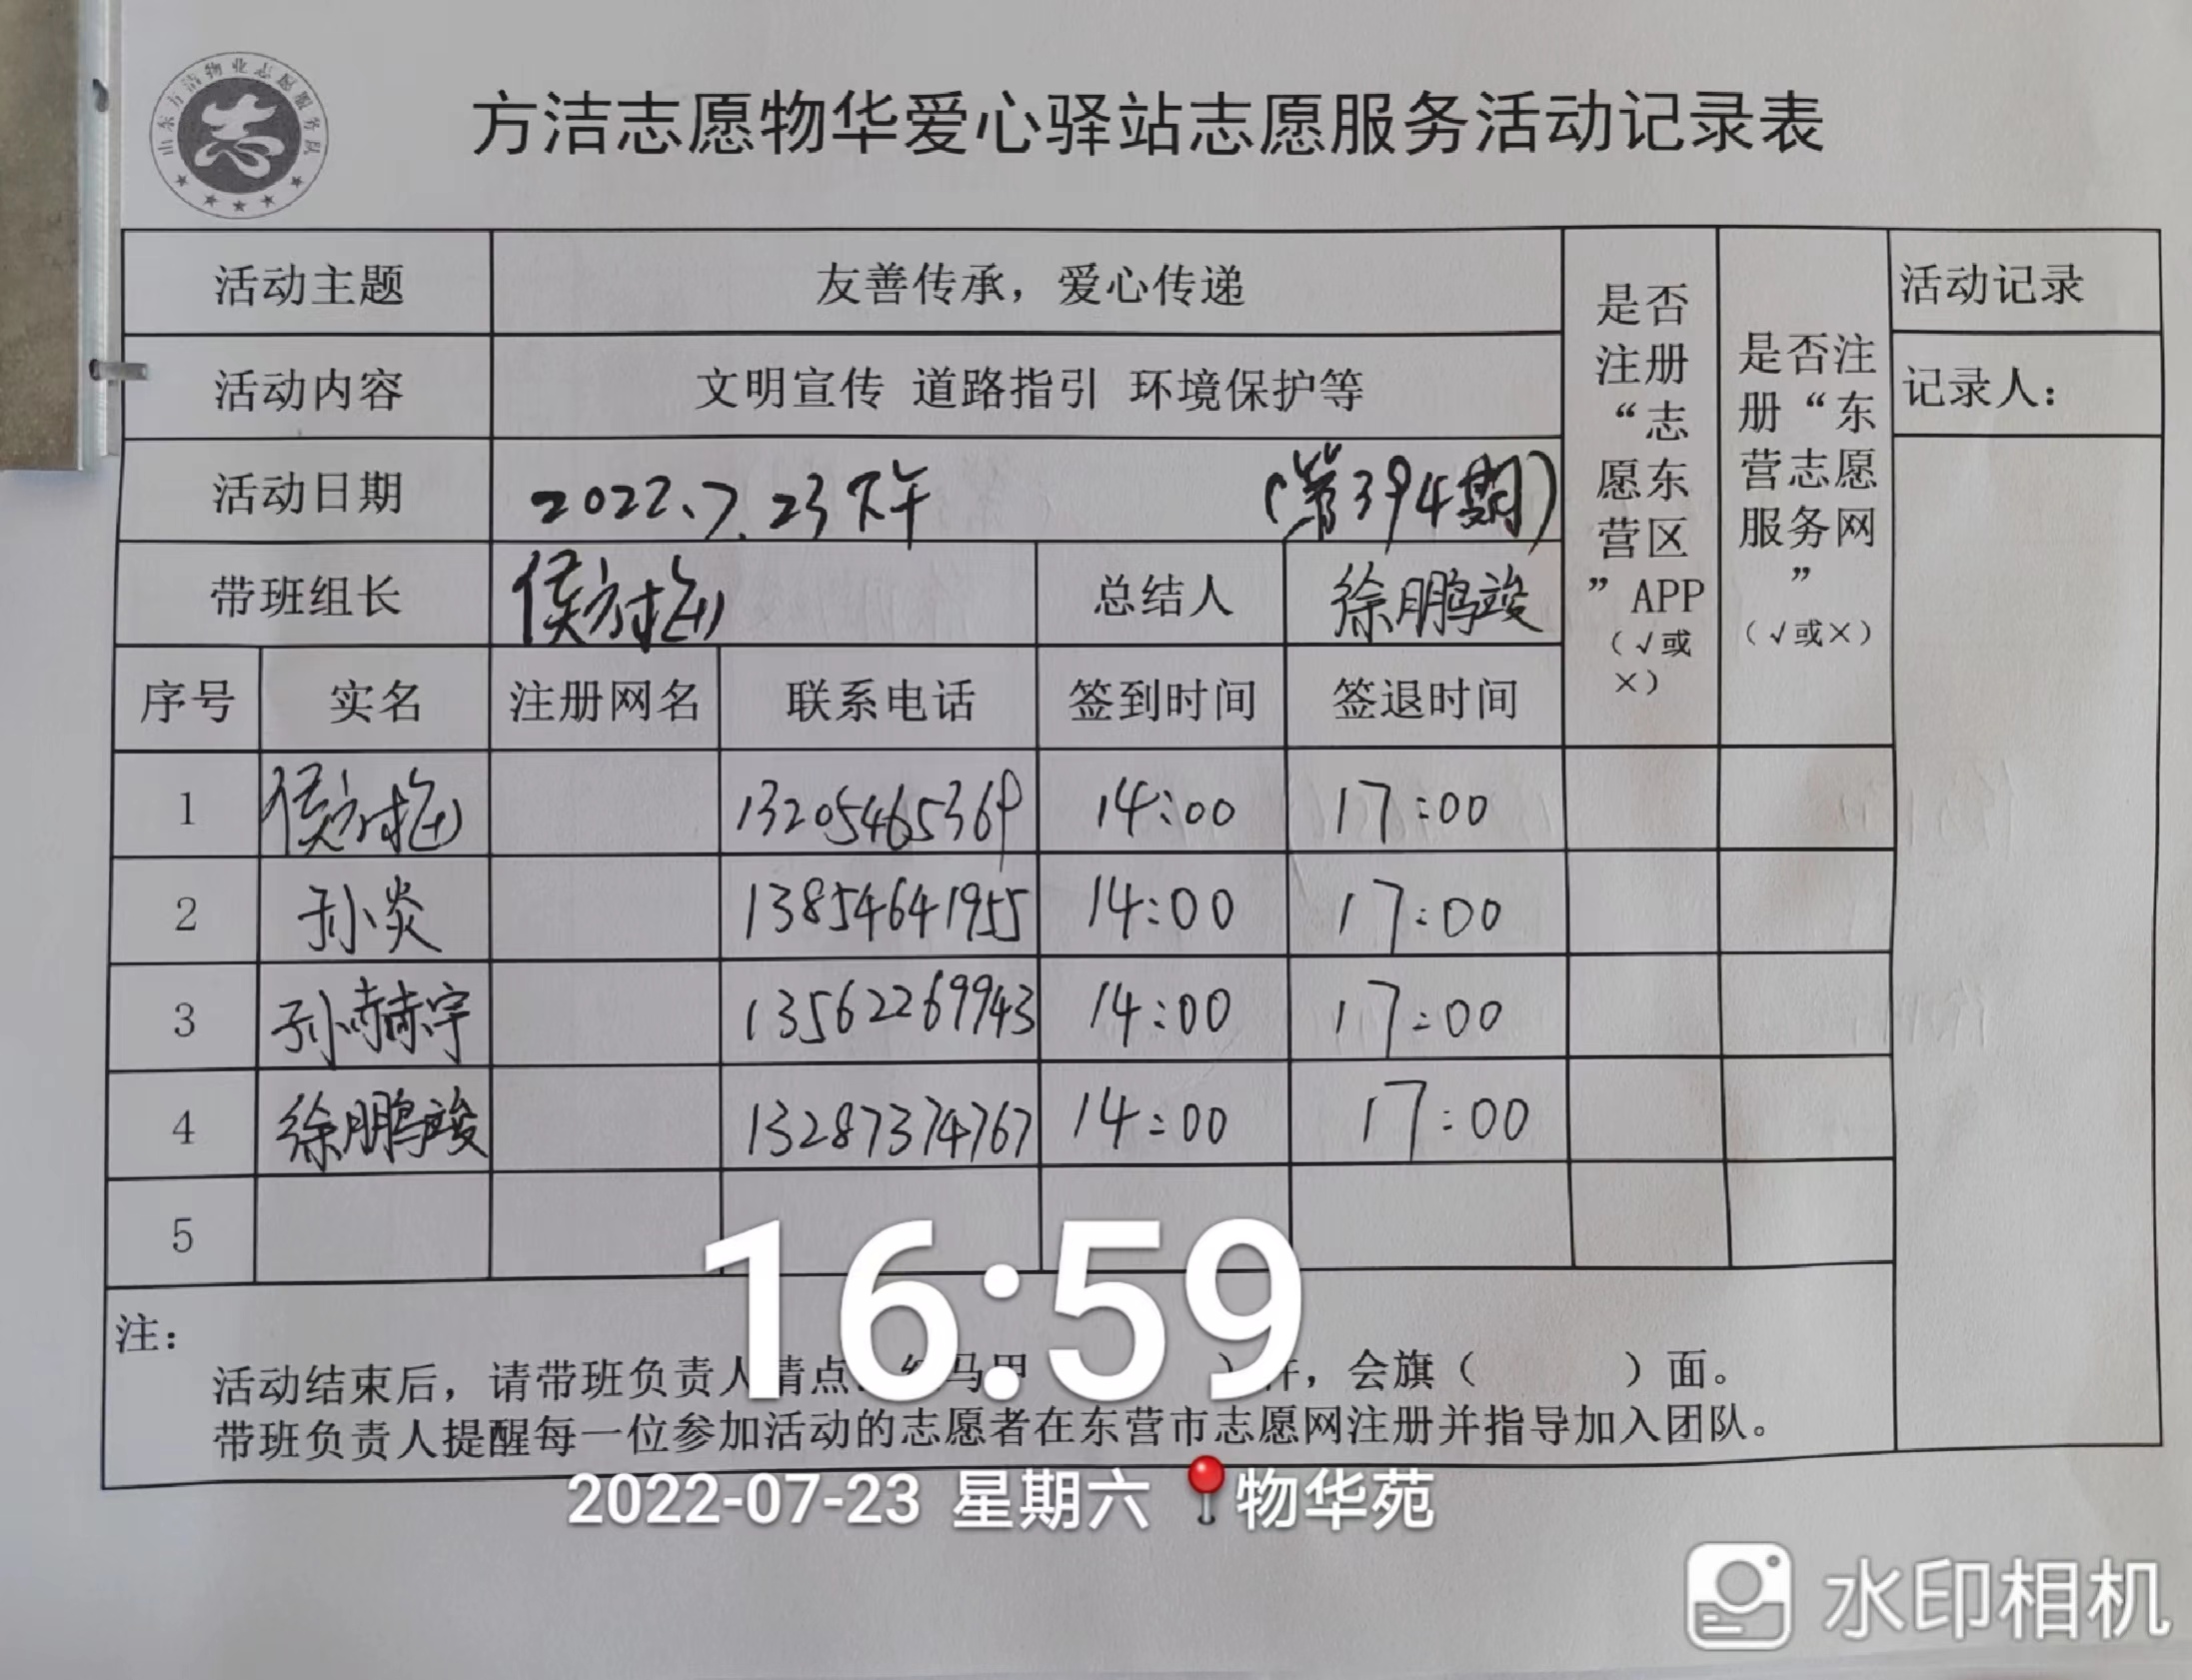 山东方洁物业志愿服务队
志
方洁志愿物华爱心驿站志愿服务活动记录表
活动主题 友善传承，爱心传递 是否注册“志愿东营区”APP（√或×） 是否注册“东营志愿服务网”（√或×） 活动记录
活动内容 文明宣传 道路指引 环境保护等 记录人：
活动日期 2022.7.23下午 （第394期）
带班组长 侯方梅 总结人 徐鹏竣
序号 实名 注册网名 联系电话 签到时间 签退时间
1 侯方梅 13205465369 14:00 17:00
2 孙炎 13854641955 14:00 17:00
3 孙赫宇 13562269943 14:00 17:00
4 徐鹏竣 13287374767 14:00 17:00
5
16:59
注：
活动结束后，请带班负责人清点 马甲 ）件，会旗（ ）面。
带班负责人提醒每一位参加活动的志愿者在东营市志愿网注册并指导加入团队。
2022-07-23 星期六 物华苑
水印相机